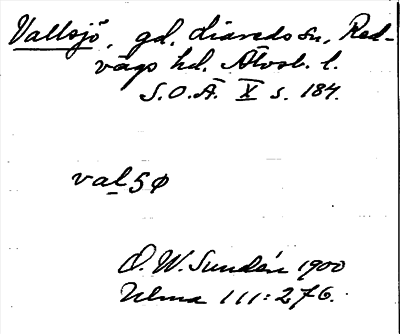 Vallsjö, gd. Liareds sn, Red-
vägs hd. Älvsb. l.
S.O.Ä. X s. 184.
val5ø
O. W. Sundén 1900
Ulma 111:276.